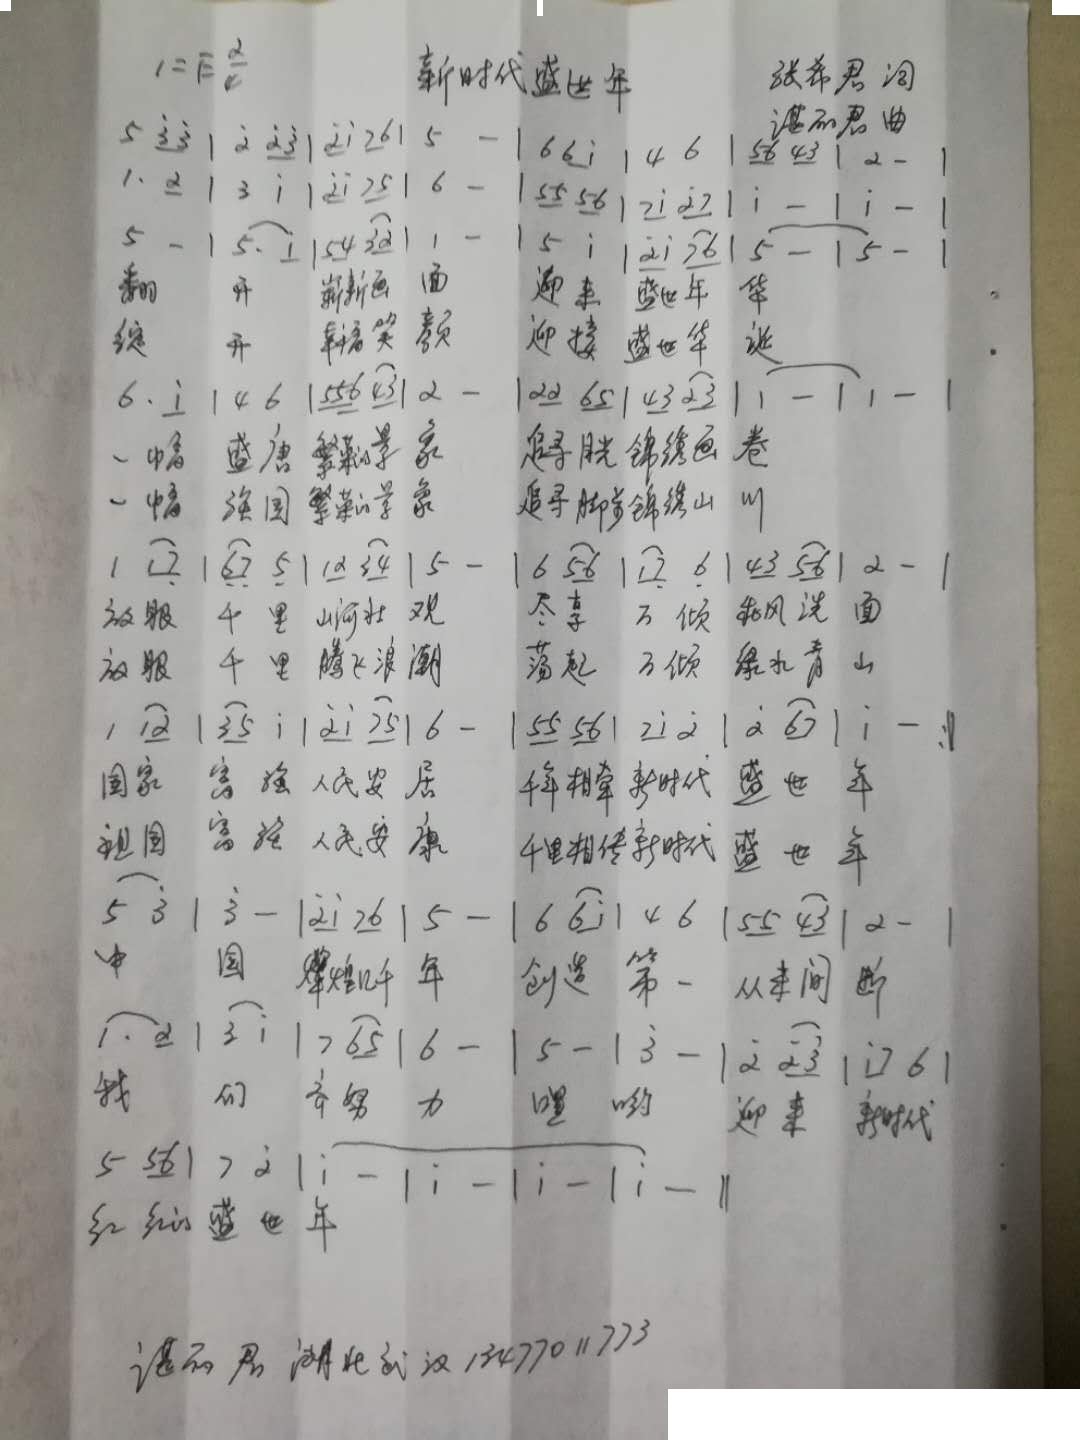 1=E 2/4 新时代盛世年 张希君 词
谌丽君 曲
5 3̇3̇ | 2̇ 2̇3̇ | 2̇1̇ 76 | 5 - | 6 61̇ | 4 6 | 56 43 | 2 - |
1. 2 | 3 1̇ | 2̇1̇ 75 | 6 - | 55 56 | 71̇ 2̇7 | 1̇ - | 1̇ - |
5 - | 5. 1̇ | 54 32 | 1 - | 5 1̇ | 2̇1̇ 76 | 5 - | 5 - |
翻 开 崭新画 面 迎 来 盛世年 华
绽 开 幸福笑 颜 迎 接 盛世华 诞
6. 1̇ | 4 6 | 556 43 | 2 - | 22 65 | 43 23 | 1 - | 1 - |
一 幅 盛 唐 繁华的景 象 追寻 目光 锦绣画 卷
一 幅 强 国 繁荣的景 象 追寻 脚步 锦绣山 川
1 17̣ | 6̣7̣ 5̣ | 12 34 | 5 - | 6 56 | 17̣ 6̣ | 43 56 | 2 - |
放眼 千 里 山河壮 观 尽享 万 倾 和风洗 面
放眼 千 里 腾飞浪 潮 荡起 万 倾 绿水青 山
1 12 | 35 1̇ | 2̇1̇ 75 | 6 - | 55 56 | 71̇ 2̇ | 2̇ 67 | 1̇ - :||
国家 富 强 人民安 居 千年相牵 新时代 盛 世 年
祖国 富 强 人民安 康 千里相传 新时代 盛 世 年
5 3̇ | 3̇ - | 2̇1̇ 76 | 5 - | 6 61̇ | 4 6 | 55 43 | 2 - |
中 国 辉煌几千 年 创造 第 一 从未间 断
1. 2 | 3 1̇ | 7 65 | 6 - | 5 - | 3̇ - | 2̇ 2̇3̇ | 1̇7 6 |
我 们 齐努 力 哩 哟 迎 来 新时代
5 56 | 7 2̇ | 1̇ - | 1̇ - | 1̇ - | 1̇ - ||
红 红的 盛 世 年
谌丽君 湖北武汉 13477011773